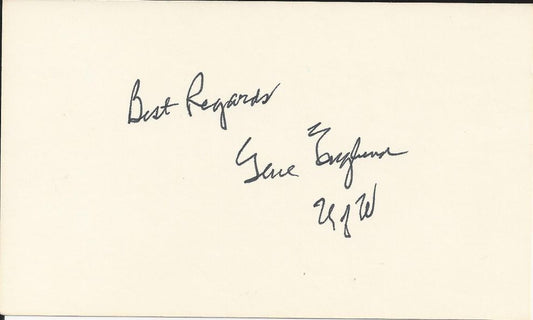 Best Regards
Gene Englund
U of W